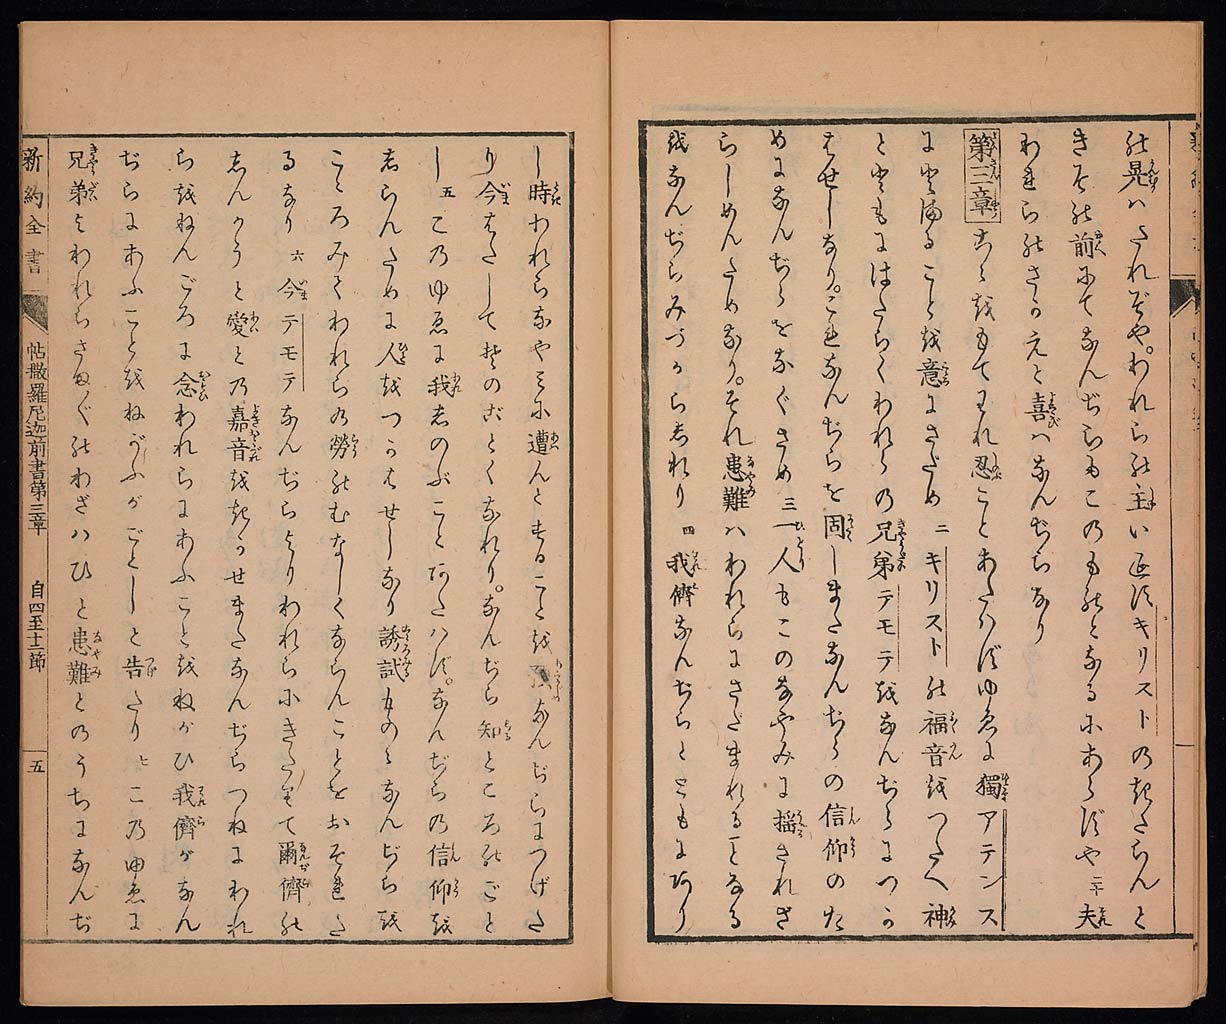 の晃ハたれぞや。われらの主いえすキリストのきたらんと
きその前にてなんぢらもこのものとなるにあらずや 二十 夫
われらのさかえと喜ハなんぢらなり
第三章 こゝをもてわれ忍ことあたハずゆゑに獨アテンス
にとゞまることを意にさだめ 二 キリストの福音をつたへ神
とともにはたらくわれらの兄弟テモテをなんぢらにつか
はせしなり。これなんぢらを固しまたなんぢらの信仰のた
めになんぢらをなぐさめ 三 一人もこのなやみに搖されざ
らしめんためなり。それ患難ハわれらにさだまれることなる
をなんぢらみづからしれり 四 我儕なんぢらとともにあり
し時われらなやみに遭んとすることをなんぢらにつげた
り今はたしてそのごとくなれり。なんぢら知ところのごと
し 五 このゆゑに我しのぶことあたハず。なんぢらの信仰を
しらんために人をつかはせしなり誘試ものゝなんぢらを
こゝろみてわれらの勞のむなしくならんことをおそれた
るなり 六 今テモテなんぢらよりわれらにきたりて爾儕の
しんかうと愛との嘉音をきかせまたなんぢらつねにわれ
らをねんごろに念われらにあふことをねがひ我儕がなん
ぢらにあふことをねがふがごとしと告たり 七 このゆゑに
兄弟よわれらさま〴〵のわざハひと患難とのうちになんぢ
新約全書 帖撒羅尼迦前書第三章 自四至十二節 五